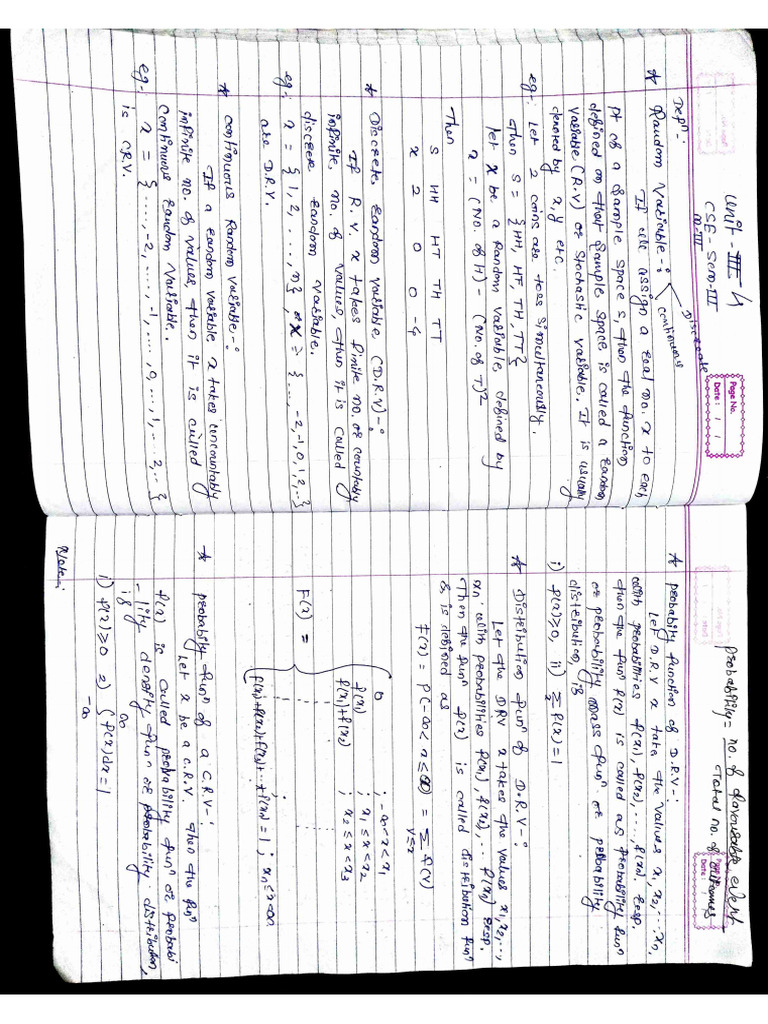 Unit - III 4
CSE - Sem-III
M-III
Page No.
Date : / /
Defn :
* Random Variable -:
Discrete
continuous
If we assign a real no. x to each
pt of a sample space s, then the function
defined on that sample space is called a random
variable (R.V) or stochastic variable. It is usually
denoted by x, y etc.
eg:- Let 2 coins are toss simultaneously.
then S = {HH, HT, TH, TT}
let X be a Random variable, defined by
x = (No. of H) - (No. of T)2
Then
S HH HT TH TT
X 2 0 0 -4
* Discrete random variable (D.R.V) -:
If R.V. x takes finite no. or countably
infinite no. of values, then it is called
discrete random variable.
eg:- x = {1, 2, ..., n} or x = {..., -2, -1, 0, 1, 2, ..}
are D.R.V.
* continuous Random variable -:
If a random variable x takes uncountably
infinite no. of values, then it is called
continuous random variable.
eg:- x = {...., -2, ...., -1, ...., 0, ..., 1, .. 2, .. }
is C.R.V.
probability = no. of favourable event
Total no. of outcomes
Date :
* probability function of D.R.V -:
Let D.R.V x take the values x1, x2, ... xn,
with probabilities f(x1), f(x2), ..., f(xn) resp.
then the funn f(x) is called as probability funn
or probability mass funn or probability
distribution, if
i) f(x) ≥ 0, ii) Σx f(x) = 1
* Distribution funn of D.R.V -:
Let the DRV x takes the values x1, x2, ...,
xn. with probabilities f(x1), f(x2), ... f(xn) resp.
Then the funn f(x) is called distribution funn
& is defined as
F(x) = P(-∞ < x ≤ ∞) = Σv≤x f(v)
F(x) = { 0 ; -∞ < x < x1
f(x1) ; x1 ≤ x < x2
f(x1) + f(x2) ; x2 ≤ x < x3
f(x1) + f(x2) + f(x3) + ... + f(xn) = 1 ; xn ≤ x < ∞
* probability funn of a C.R.V -:
Let x be a C.R.V. then the funn
f(x) is called probability funn or probabi
-lity density funn or probability distribution,
if
i) f(x) ≥ 0 2) ∫-∞∞ f(x)dx = 1
Note:-